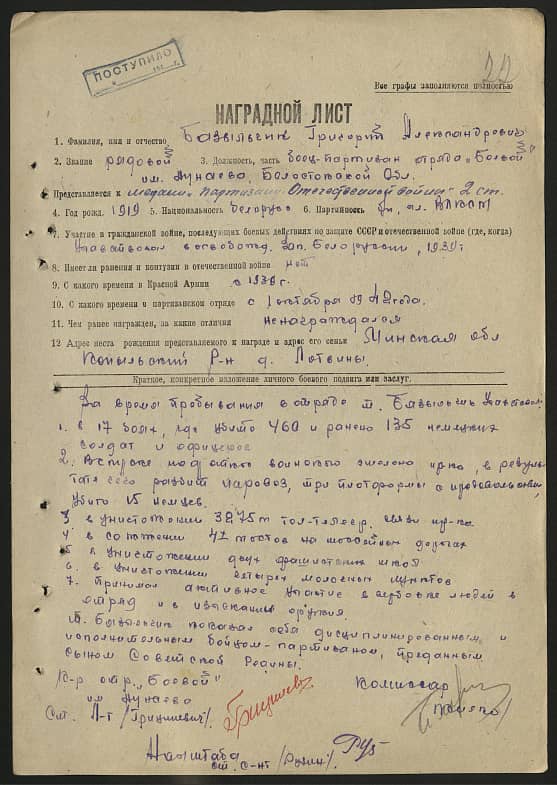 22
ПОСТУПИЛО
Все графы заполняются полностью
НАГРАДНОЙ ЛИСТ
1. Фамилия, имя и отчество Базылевич Григорий Александрович
2. Звание рядовой 3. Должность, часть боец-партизан отряда „Боевой"
им. Дунаева, Белостокской Обл.
Представляется к медали „Партизану Отечественной войны" 2 ст.
4. Год рожд. 1919 5. Национальность белорус 6. Партийность чл. ВЛКСМ
7. Участие в гражданской войне, последующих боевых действиях по защите СССР и отечественной войне (где, когда)
Участвовал в освобожд. Зап. Белоруссии, 1939 г
8. Имеет ли ранения и контузии в отечественной войне нет
9. С какого времени в Красной Армии с 1939 г.
10. С какого времени в партизанском отряде с 1 октября 1942 года.
11. Чем ранее награжден, за какие отличия ненаграждался
12 Адрес места рождения представляемого к награде и адрес его семьи Минская обл
Копыльский р-н д. Лотвины
Краткое, конкретное изложение личного боевого подвига или заслуг.
За время пребывания в отряде т. Базылевич участвовал:
1. в 17 боях, где убито 460 и ранено 135 немецких
солдат и офицеров
2. В спуске под откос воинского эшелона пр-ка, в резуль
тате чего разбит паровоз, три платформы с продовольствием,
убито 15 немцев.
3 в уничтожении 3275 м тел-телегр. связи пр-ка
4 в сожжении 41 мостов на шоссейных дорогах
5 в уничтожении двух фашистских школ
6. в уничтожении четырех молочных пунктов
7. Принимал активное участие в вербовке людей в
отряд и в изыскании оружия.
Т. Базылевич показал себя дисциплинированным и
исполнительным бойцом-партизаном, преданным
сыном Советской Родины.
К-р отр. „Боевой" Комиссар
им Дунаева
Ст. Л-т /Грицкевич/
Нач штаба
ст. с-нт